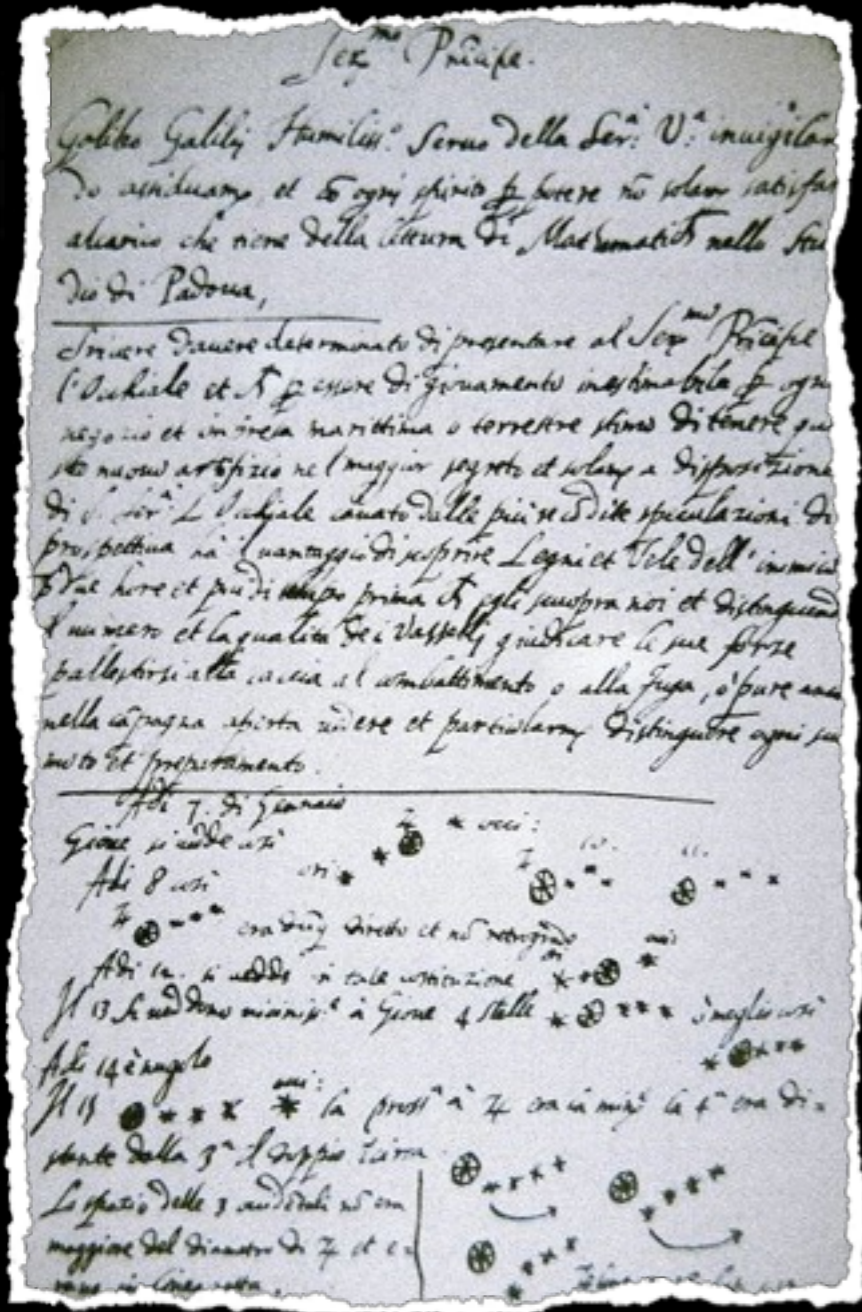 Ser.mo Principe.
Galileo Galilej Humiliss.o Seruo della Ser.a V.a inuigilan
do assiduam.te, et cõ ogni spirito p potere nõ solam.te satisfar
alcarico che tiene della lettura di Mathematich nello Stu
dio di Padoua,
Scriuere dauere determinato di presentare al Ser.mo Principe
l'Ochiale et ch p essere di giouamento inestimabile p ogni
negozio et impresa marittima o terrestre stimo di tenere que
sto nuouo artifizio nel maggior segreto et solam.te a disposizione
di S. Ser.a L'Ochiale cauato dalle più recõdite speculazioni di
prospettiua hà il uantaggio di scoprire Legni et Vele dell'inimico
p due hore et più di tempo prima ch egli scuopra noi et distinguendo
il numero et la qualità dei Vasselli giudicare le sue forze
pallestirsi alla caccia al combattimento o alla fuga, ò pure anco
nella cãpagna aperta uedere et particolarm.te distinguere ogni suo
moto et preparamento.
Adi 7. di Gennaio
Gioue si uede così occi:
Adi 8 così ori
era dũq diretto et nõ retrogrado
Adi 12. si uedde in tale costituzione
Il 13 si ueddono à Gioue 4 stelle ò meglio così
Adi 14 è nugolo
Il 15 occi: la pross.a à ♃ era la min.e la 4.a era di=
stante dalla 3.a il doppio circa
Lo spazio delle 3 occidẽtali nõ era
maggiore del diametro di ♃ et e=
rano in linea retta.